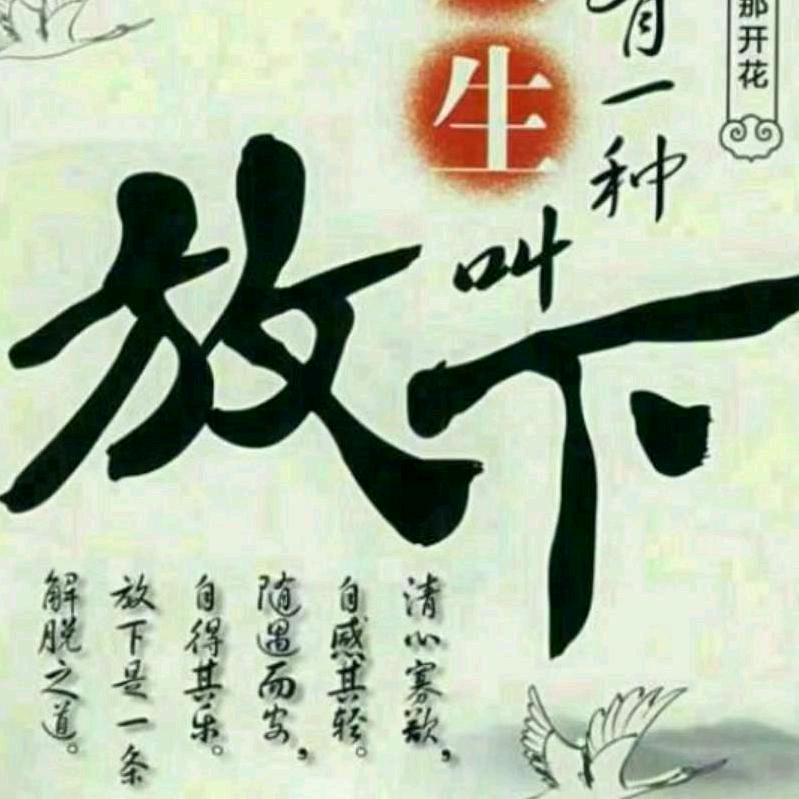 那开花
有一种
生
叫
放下
清心寡欲，
自感其轻。
随遇而安，
自得其乐。
放下是一条
解脱之道。